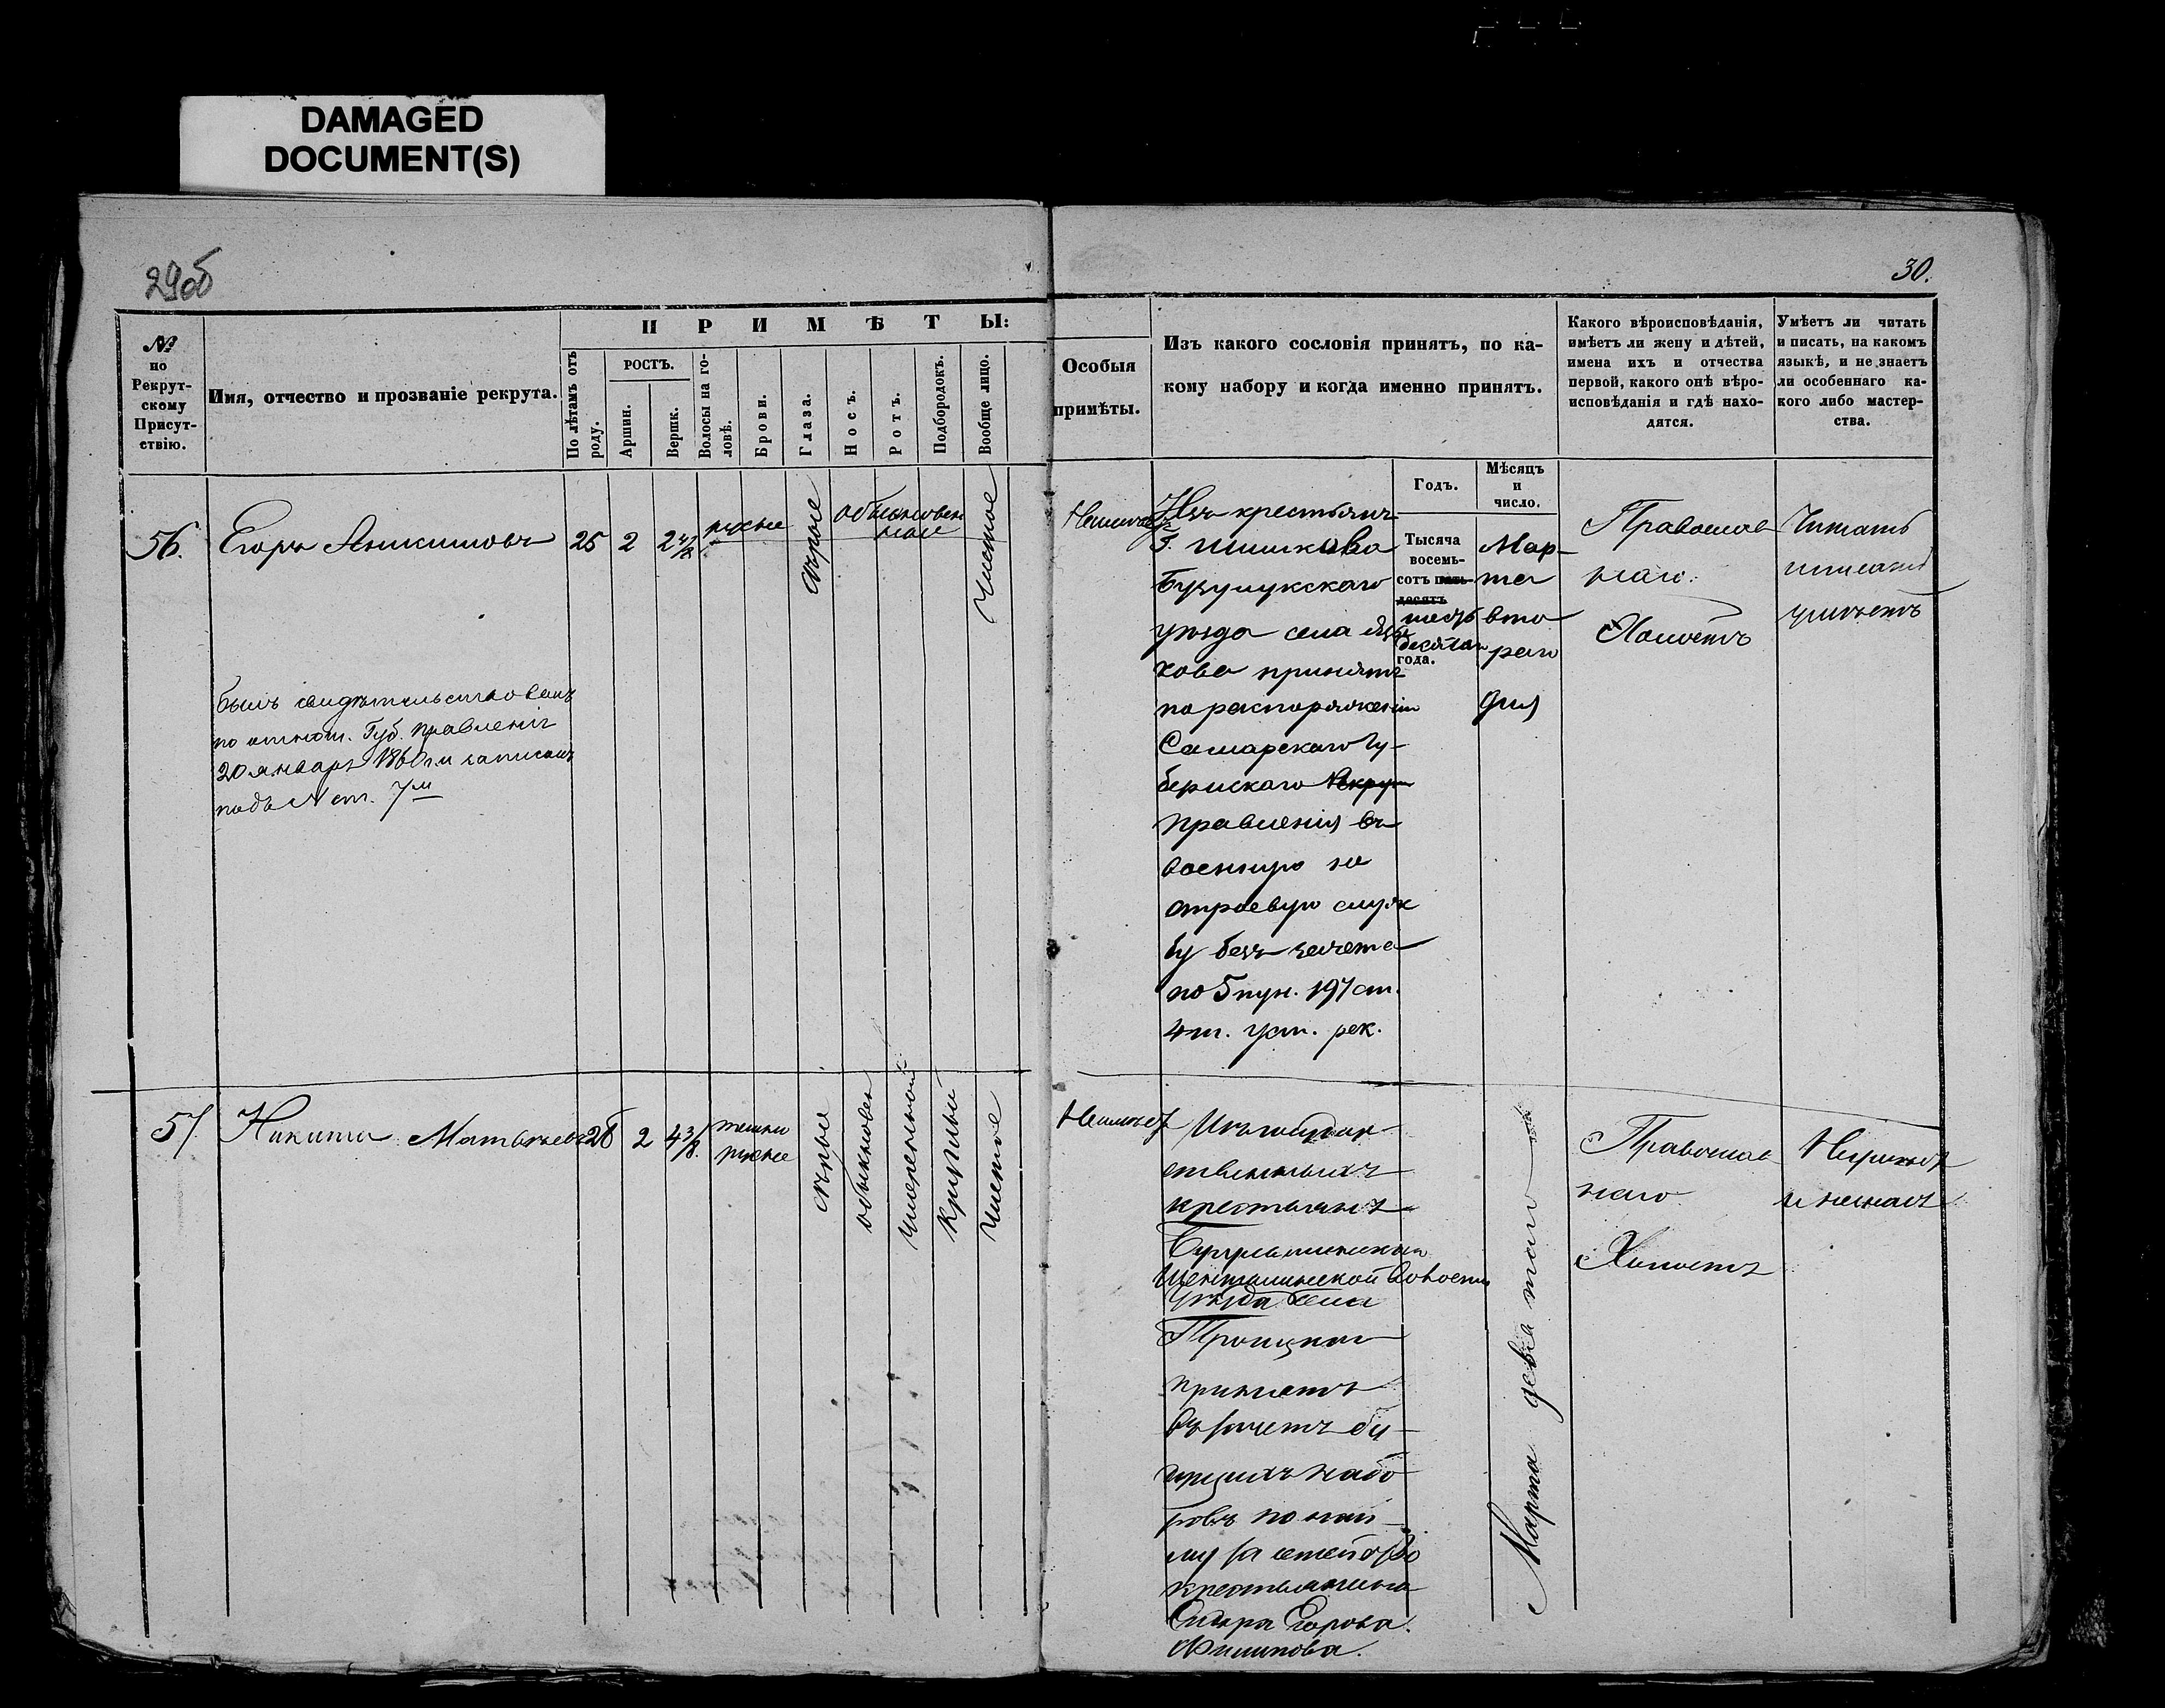 DAMAGED
DOCUMENT(S)
29об
30.
№
по
Рекрут-
скому
Присут-
ствію.
Имя, отчество и прозваніе рекрута.
ПРИМѢТЫ:
По лѣтамъ отъ
роду.
РОСТЪ.
Аршин.
Вершк.
Волосы на го-
ловѣ.
Брови.
Глаза.
Носъ.
Ротъ.
Подбородокъ.
Вообще лицо.
Особыя
примѣты.
Изъ какого сословія принятъ, по ка-
кому набору и когда именно принятъ.
Годъ.
Мѣсяцъ
и
число.
Какого вѣроисповѣданія,
имѣетъ ли жену и дѣтей,
имена ихъ и отчества
первой, какого онѣ вѣро-
исповѣданія и гдѣ нахо-
дятся.
Умѣетъ ли читать
и писать, на какомъ
языкѣ, и не знаетъ
ли особеннаго ка-
кого либо мастер-
ства.
56.
Егоръ Аникимовъ
25
2
2 4/8
русые
сѣрые
обыкновен
ное
Чистое
былъ свидѣтельствованъ
по отнош. Губ. правленія
20 января 1860 г. и записанъ
подъ № ст. 7м
Изъ крестьянъ
Г. Шишкова
Бузулукскаго
уѣзда села
кова принятъ
по распоряженію
Самарскаго Гу-
бернскаго Рекрут
правленія въ
военную не
строевую служ
бу безъ зачета
по 5 пун. 197 ст.
4 т. уст. рек.
Тысяча
восемь-
сотъ пять-
десятъ
шесть
десятаго
года.
Мар-
та
вто
раго
дня
Православ
наго.
Холостъ
Читать
писать
умѣетъ
57.
Никита Матвѣевъ
26
2
4 3/8.
темно
русые
сѣрые
обыкновен
умеренный
Круглый
Чистое
Неимѣетъ
Изъ государ-
ственныхъ
крестьянъ
Бугульминскаго
Шенталинской волости
Уѣзда села
Троицкаго
принятъ
въ зачетъ бу-
дущихъ набо
ровъ по най-
му за семейство
крестьянина
Сидора Егорова.
Филипова.
Марта девятаго
Православ
наго
Холостъ
Неумѣетъ
и незнаетъ